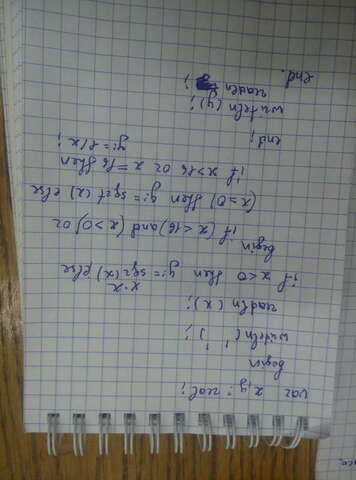 var x,y: real;
begin
writeln (' ');
readln (x);
x·x
if x<0 then y:= sqr(x) else
begin
if (x<16) and (x>0) or
(x=0) then y:= sqrt (x) else
if x>16 or x=16 then
y:= 8/x;
end;
writeln (y);
readln
end.